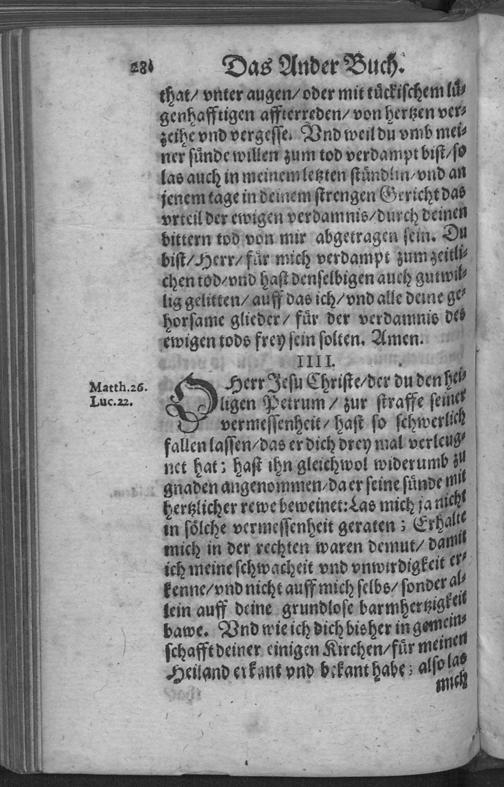 28 Das Ander Buch.
that/ vnter augen/ oder mit tückischem lü⸗
genhafftigen affterreden/ von hertzen ver⸗
zeihe vnd vergesse. Vnd weil du vmb mei⸗
ner sünde willen zum tod verdampt bist/ so
las auch in meinem letzten stündlin/ vnd an
jenem tage in deinem strengen Gericht das
vrteil der ewigen verdamnis/ durch deinen
bittern tod von mir abgetragen sein. Du
bist/ Herr/ für mich verdampt zum zeitli⸗
chen tod/ vnd hast denselbigen auch gutwil⸗
lig gelitten/ auff das ich/ vnd alle deine ge⸗
horsame glieder/ für der verdamnis des
ewigen tods frey sein solten. Amen.
IIII.
Matth. 26.
Luc. 22.
O Herr Jesu Christe/ der du den hei⸗
ligen Petrum/ zur straffe seiner
vermessenheit/ hast so schwerlich
fallen lassen/ das er dich drey mal verleug⸗
net hat; hast ihn gleichwol widerumb zu
gnaden angenommen/ da er seine sünde mit
hertzlicher rewe beweinet: Las mich ja nicht
in sölche vermessenheit geraten; Erhalte
mich in der rechten waren demut/ damit
ich meine schwacheit vnd vnwirdigkeit er⸗
kenne/ vnd nicht auff mich selbs/ sonder al⸗
lein auff deine grundlose barmhertzigkeit
bawe. Vnd wie ich dich bisher in gemein⸗
schafft deiner einigen Kirchen/ für meinen
Heiland erkant vnd bekant habe; also las
mich